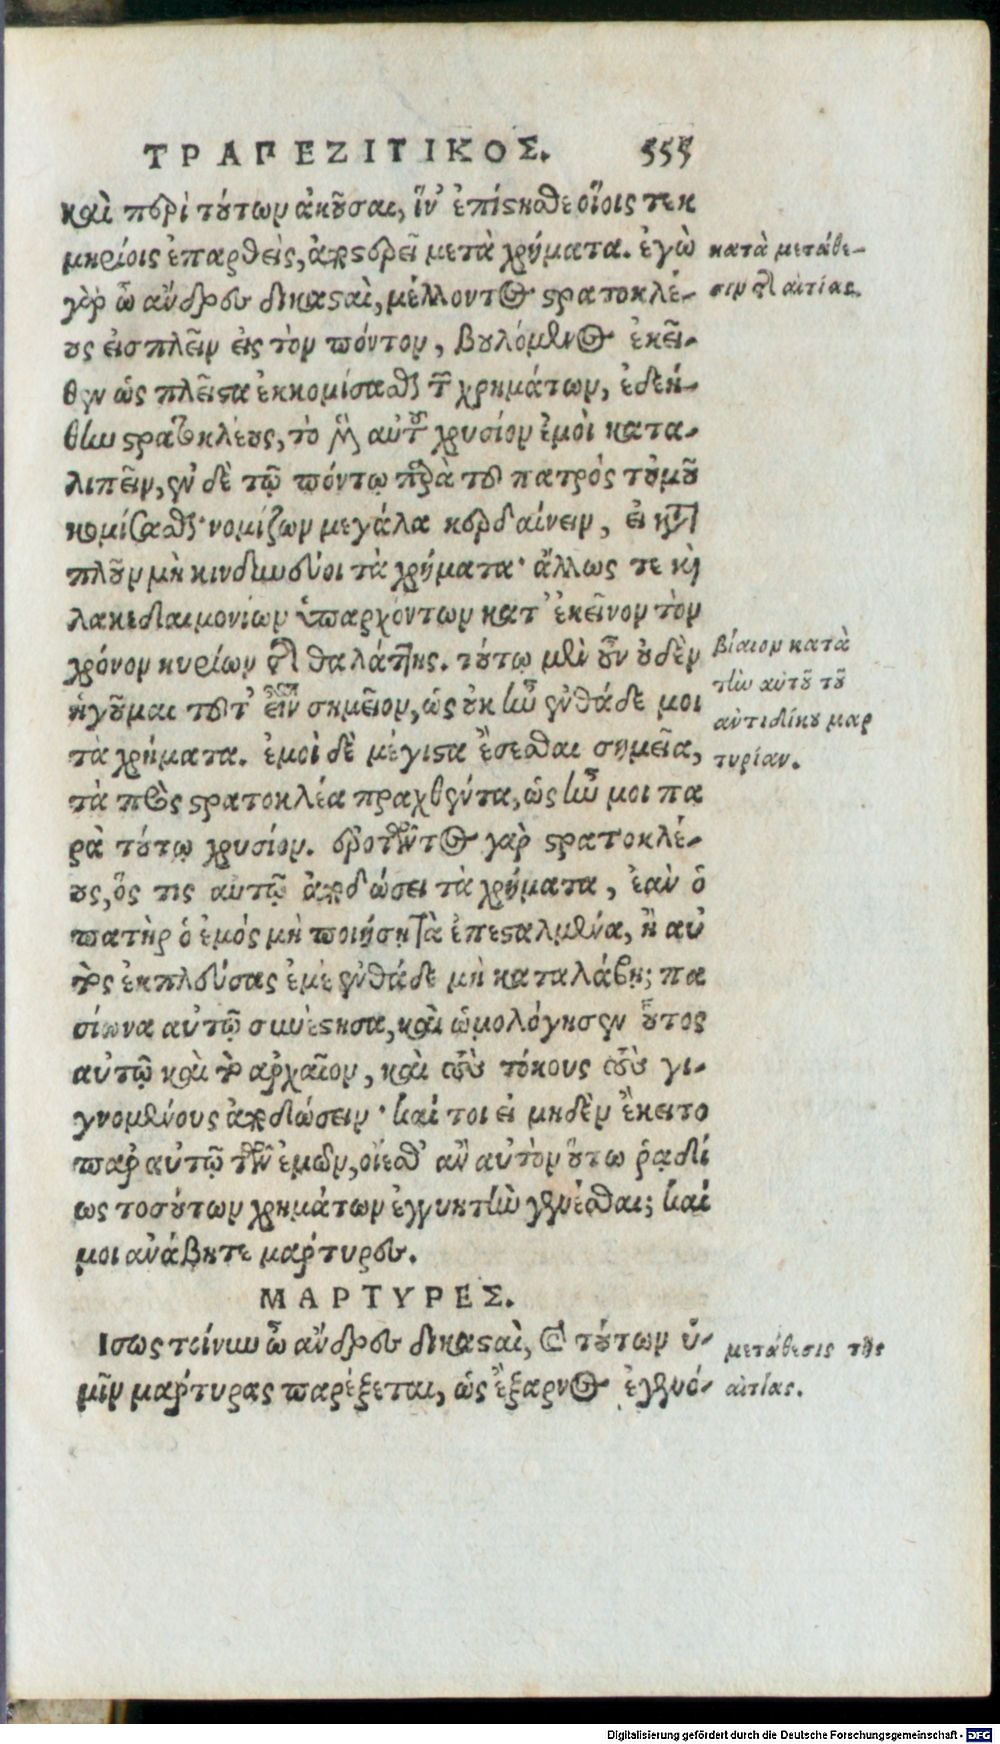 ΤΡΑΠΕΖΙΤΙΚΟΣ. 555
καὶ περὶ τούτων ἀκοῦσαι, ἵν' ἐπίστησθε οἵοις τεκ
μηρίοις ἐπαρθεὶς, ἀποστερεῖ με τὰ χρήματα. ἐγὼ
κατὰ μετάθε-
γὰρ ὦ ἄνδρες δικασταὶ, μέλλοντος στρατοκλέ-
σιν τῆς αἰτίας.
ους εἰσπλεῖν εἰς τὸν πόντον, βουλόμενος ἐκεῖ-
θεν ὡς πλεῖστα ἐκκομίσασθαι τῶν χρημάτων, ἐδεή-
θην στρατοκλέους, τὸ μὲν αὐτοῦ χρυσίον ἐμοὶ κατα-
λιπεῖν, ἐν δὲ τῷ πόντῳ παρὰ τοῦ πατρὸς τοὐμοῦ
κομίσασθαι· νομίζων μεγάλα κερδαίνειν, εἰ κατὰ
πλοῦν μὴ κινδυνεύοι τὰ χρήματα· ἄλλως τε καὶ
λακεδαιμονίων ὑπαρχόντων κατ' ἐκεῖνον τὸν
χρόνον κυρίων τῆς θαλάττης. τούτῳ μὲν οὖν οὐδὲν
βίαιον κατὰ
ἡγοῦμαι τοῦτ' εἶναι σημεῖον, ὡς οὐκ ἦν ἐνθάδε μοι
τὴν αὐτοῦ τοῦ
ἀντιδίκου μαρ
τὰ χρήματα. ἐμοὶ δὲ μέγιστα ἔσεσθαι σημεῖα,
τυρίαν.
τὰ πρὸς στρατοκλέα πραχθέντα, ὡς ἦν μοι πα
ρὰ τούτῳ χρυσίον. ἐρωτῶντος γὰρ στρατοκλέ-
ους, ὅς τις αὐτῷ ἀποδώσει τὰ χρήματα, ἐὰν ὁ
πατὴρ ὁ ἐμός μὴ ποιήσῃ τὰ ἐπεσταλμένα, ἢ αὐ
τὸς ἐκπλεύσας ἐμὲ ἐνθάδε μὴ καταλάβῃ; πα
σίωνα αὐτῷ συνέστησα, καὶ ὡμολόγησεν οὗτος
αὐτῷ καὶ τὸ ἀρχαῖον, καὶ τοὺς τόκους τοὺς γι-
γνομένους ἀποδώσειν· καί τοι εἰ μηδὲν ἔκειτο
παρ' αὐτῷ τῶν ἐμῶν, οἴεσθ' ἂν αὐτὸν οὕτω ῥᾳδί
ως τοσούτων χρημάτων ἐγγυητὴν γενέσθαι; καί
μοι ἀνάβητε μάρτυρες.
ΜΑΡΤΥΡΕΣ.
Ισως τοίνυν ὦ ἄνδρες δικασταὶ, καὶ τούτων ὑ-
μετάθεσις τῆς
μῖν μάρτυρας παρέξεται, ὡς ἔξαρνος ἐγενό-
αἰτίας.
Digitalisierung gefördert durch die Deutsche Forschungsgemeinschaft - DFG